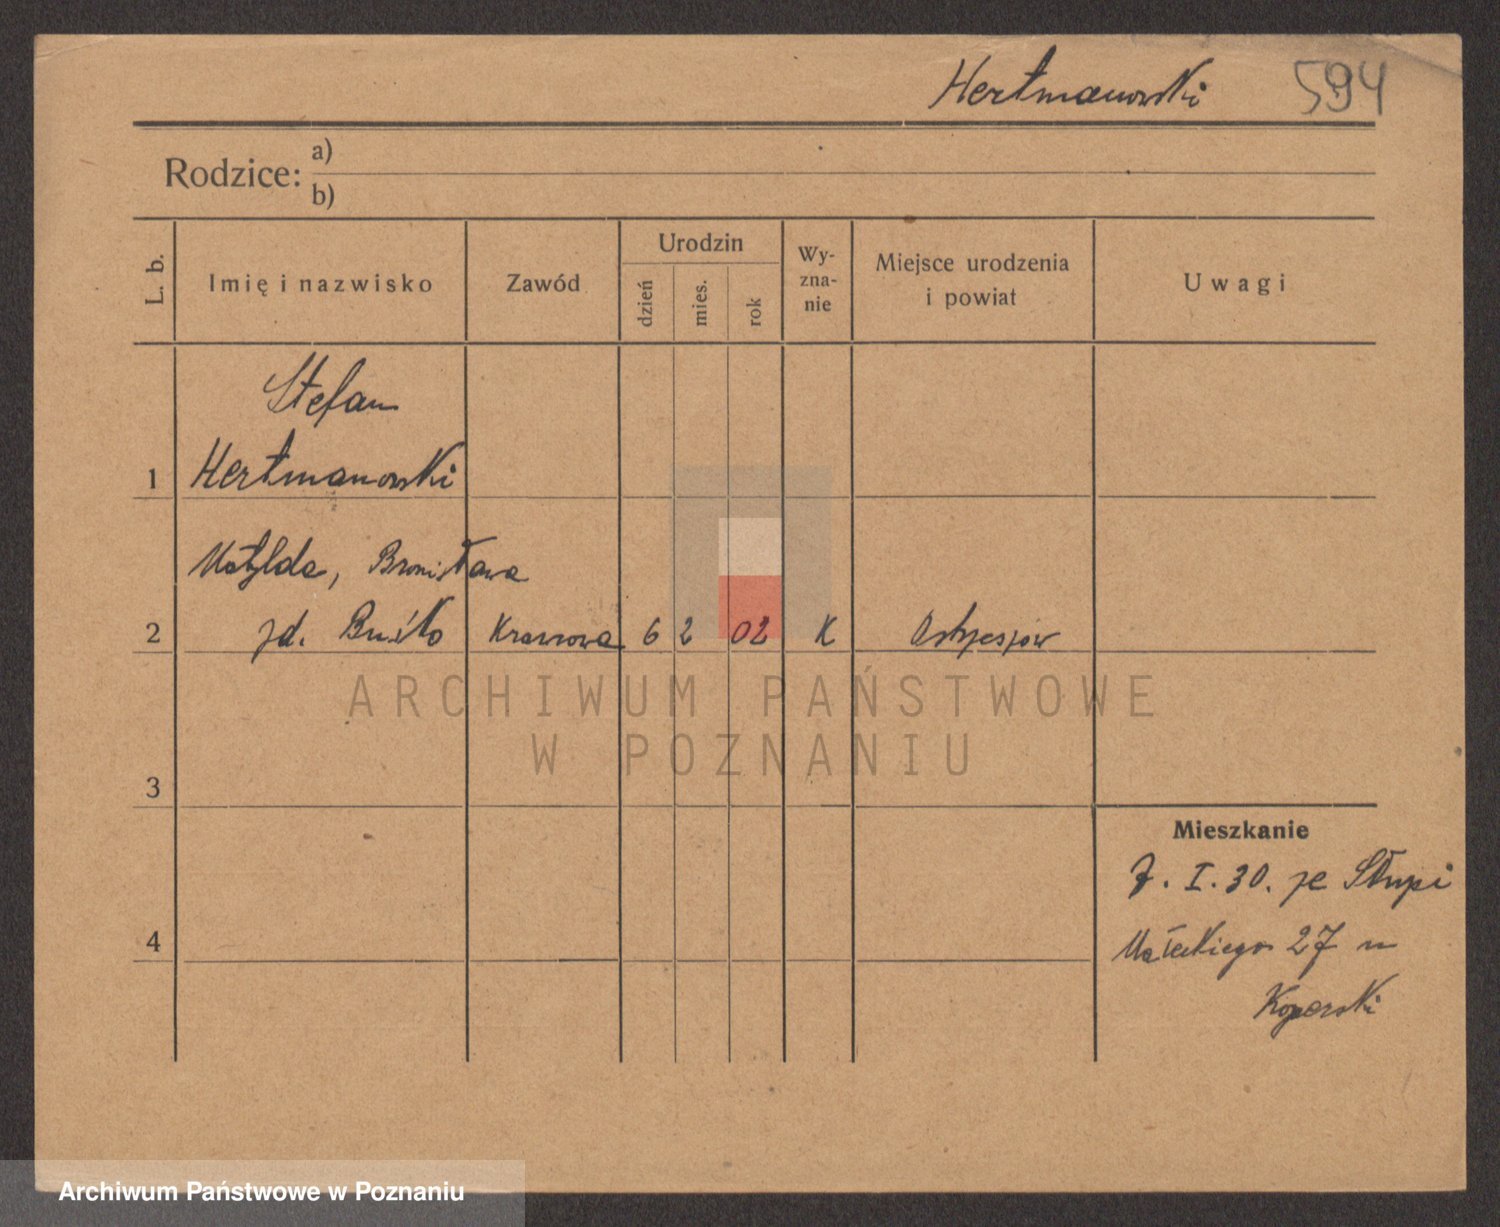 Hertmanowski 594
Rodzice: a)
b)
L. b. Imię i nazwisko Zawód Urodzin dzień mies. rok Wy-zna-nie Miejsce urodzenia i powiat Uwagi
Stefan
1 Hertmanowski
Matylda, Bronisława
2 zd. Buśko Krawcowa 6 2 02 K Ostrzeszów
ARCHIWUM PAŃSTWOWE
W POZNANIU
3
Mieszkanie
7. I. 30. ze Słupi
4 Małeckiego 27 u
Koperski
Archiwum Państwowe w Poznaniu